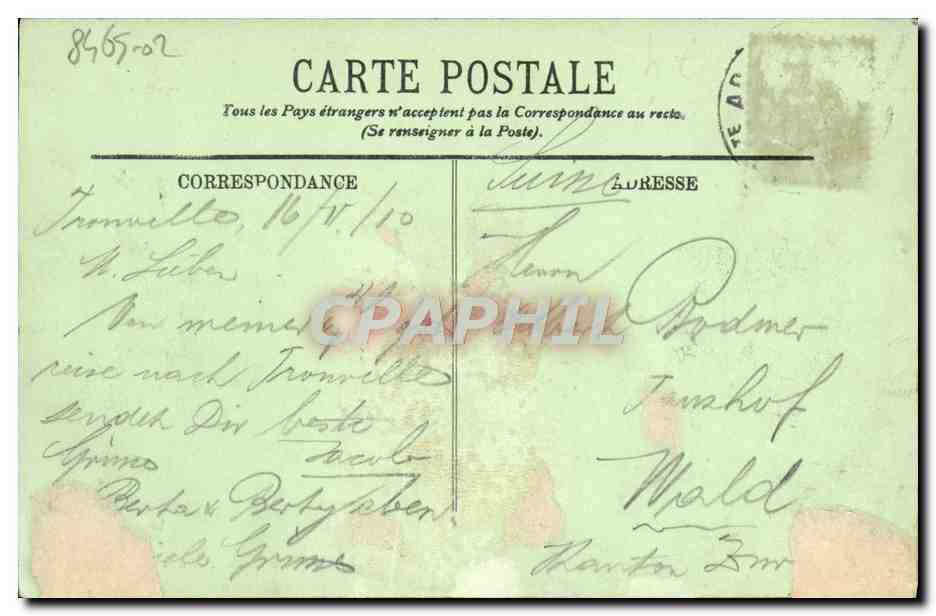 8465-02
CARTE POSTALE
Tous les Pays étrangers n'acceptent pas la Correspondance au recto.
(Se renseigner à la Poste).
CORRESPONDANCE
Tronville, 16/V./10
M. Lieber
Von meiner
reise nach Tronville
sendet Dir beste
Grüsse Jacob
Berta & Berty
viele Grüsse
ADRESSE
Suisse
Herrn
Bodmer
Wald
Kanton Zür
CPAPHIL